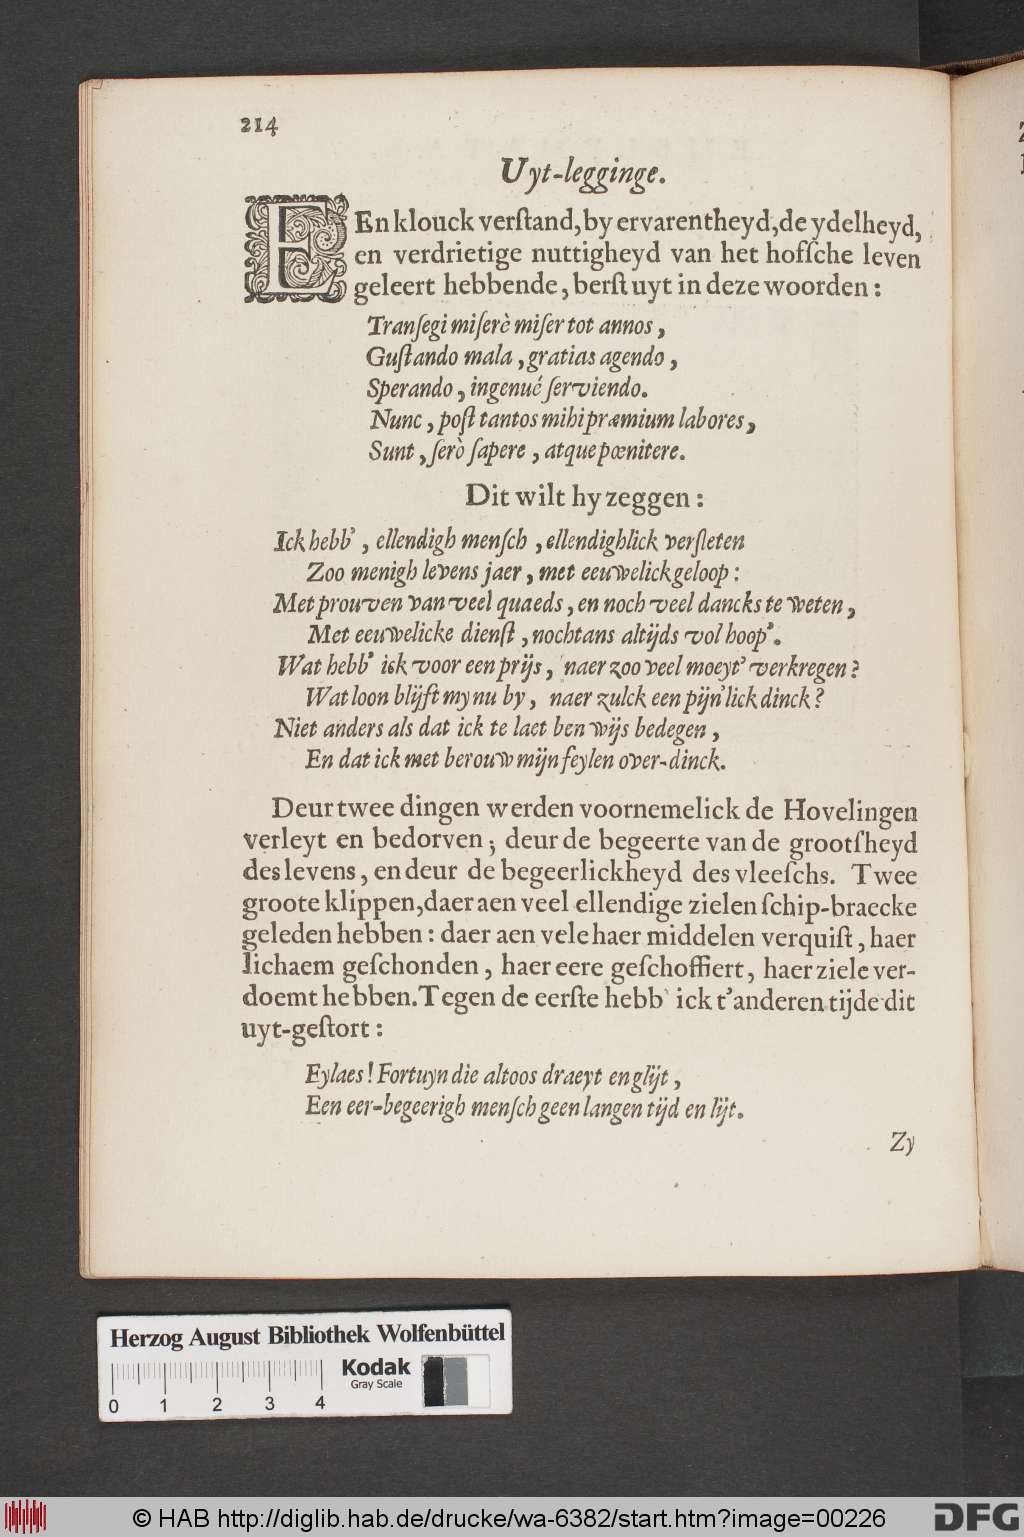 214
Uyt-legginge.
EEn klouck verſtand, by ervarentheyd, de ydelheyd,
en verdrietige nuttigheyd van het hofſche leven
geleert hebbende, berſt uyt in deze woorden:
Tranſegi miſerè miſer tot annos,
Guſtando mala, gratias agendo,
Sperando, ingenué ſerviendo.
Nunc, poſt tantos mihi præmium labores,
Sunt, ſerò ſapere, atque pœnitere.
Dit wilt hy zeggen:
Ick hebb', ellendigh menſch, ellendighlick verſleten
Zoo menigh levens jaer, met eeuwelick geloop:
Met prouven van veel quaeds, en noch veel dancks te weten,
Met eeuwelicke dienſt, nochtans altijds vol hoop'.
Wat hebb' ick voor een prijs, naer zoo veel moeyt' verkregen?
Wat loon blijft my nu by, naer zulck een pijn'lick dinck?
Niet anders als dat ick te laet ben wijs bedegen,
En dat ick met berouw mijn feylen over-dinck.
Deur twee dingen werden voornemelick de Hovelingen
verleyt en bedorven; deur de begeerte van de grootſheyd
des levens, en deur de begeerlickheyd des vleeſchs. Twee
groote klippen, daer aen veel ellendige zielen ſchip-braecke
geleden hebben: daer aen vele haer middelen verquiſt, haer
lichaem geſchonden, haer eere geſchoffiert, haer ziele ver-
doemt hebben. Tegen de eerſte hebb' ick t'anderen tijde dit
uyt-geſtort:
Eylaes! Fortuyn die altoos draeyt en glijt,
Een eer-begeerigh menſch geen langen tijd en lijt.
Zy
Herzog August Bibliothek Wolfenbüttel
Kodak
Gray Scale
0 1 2 3 4
© HAB http://diglib.hab.de/drucke/wa-6382/start.htm?image=00226
DFG